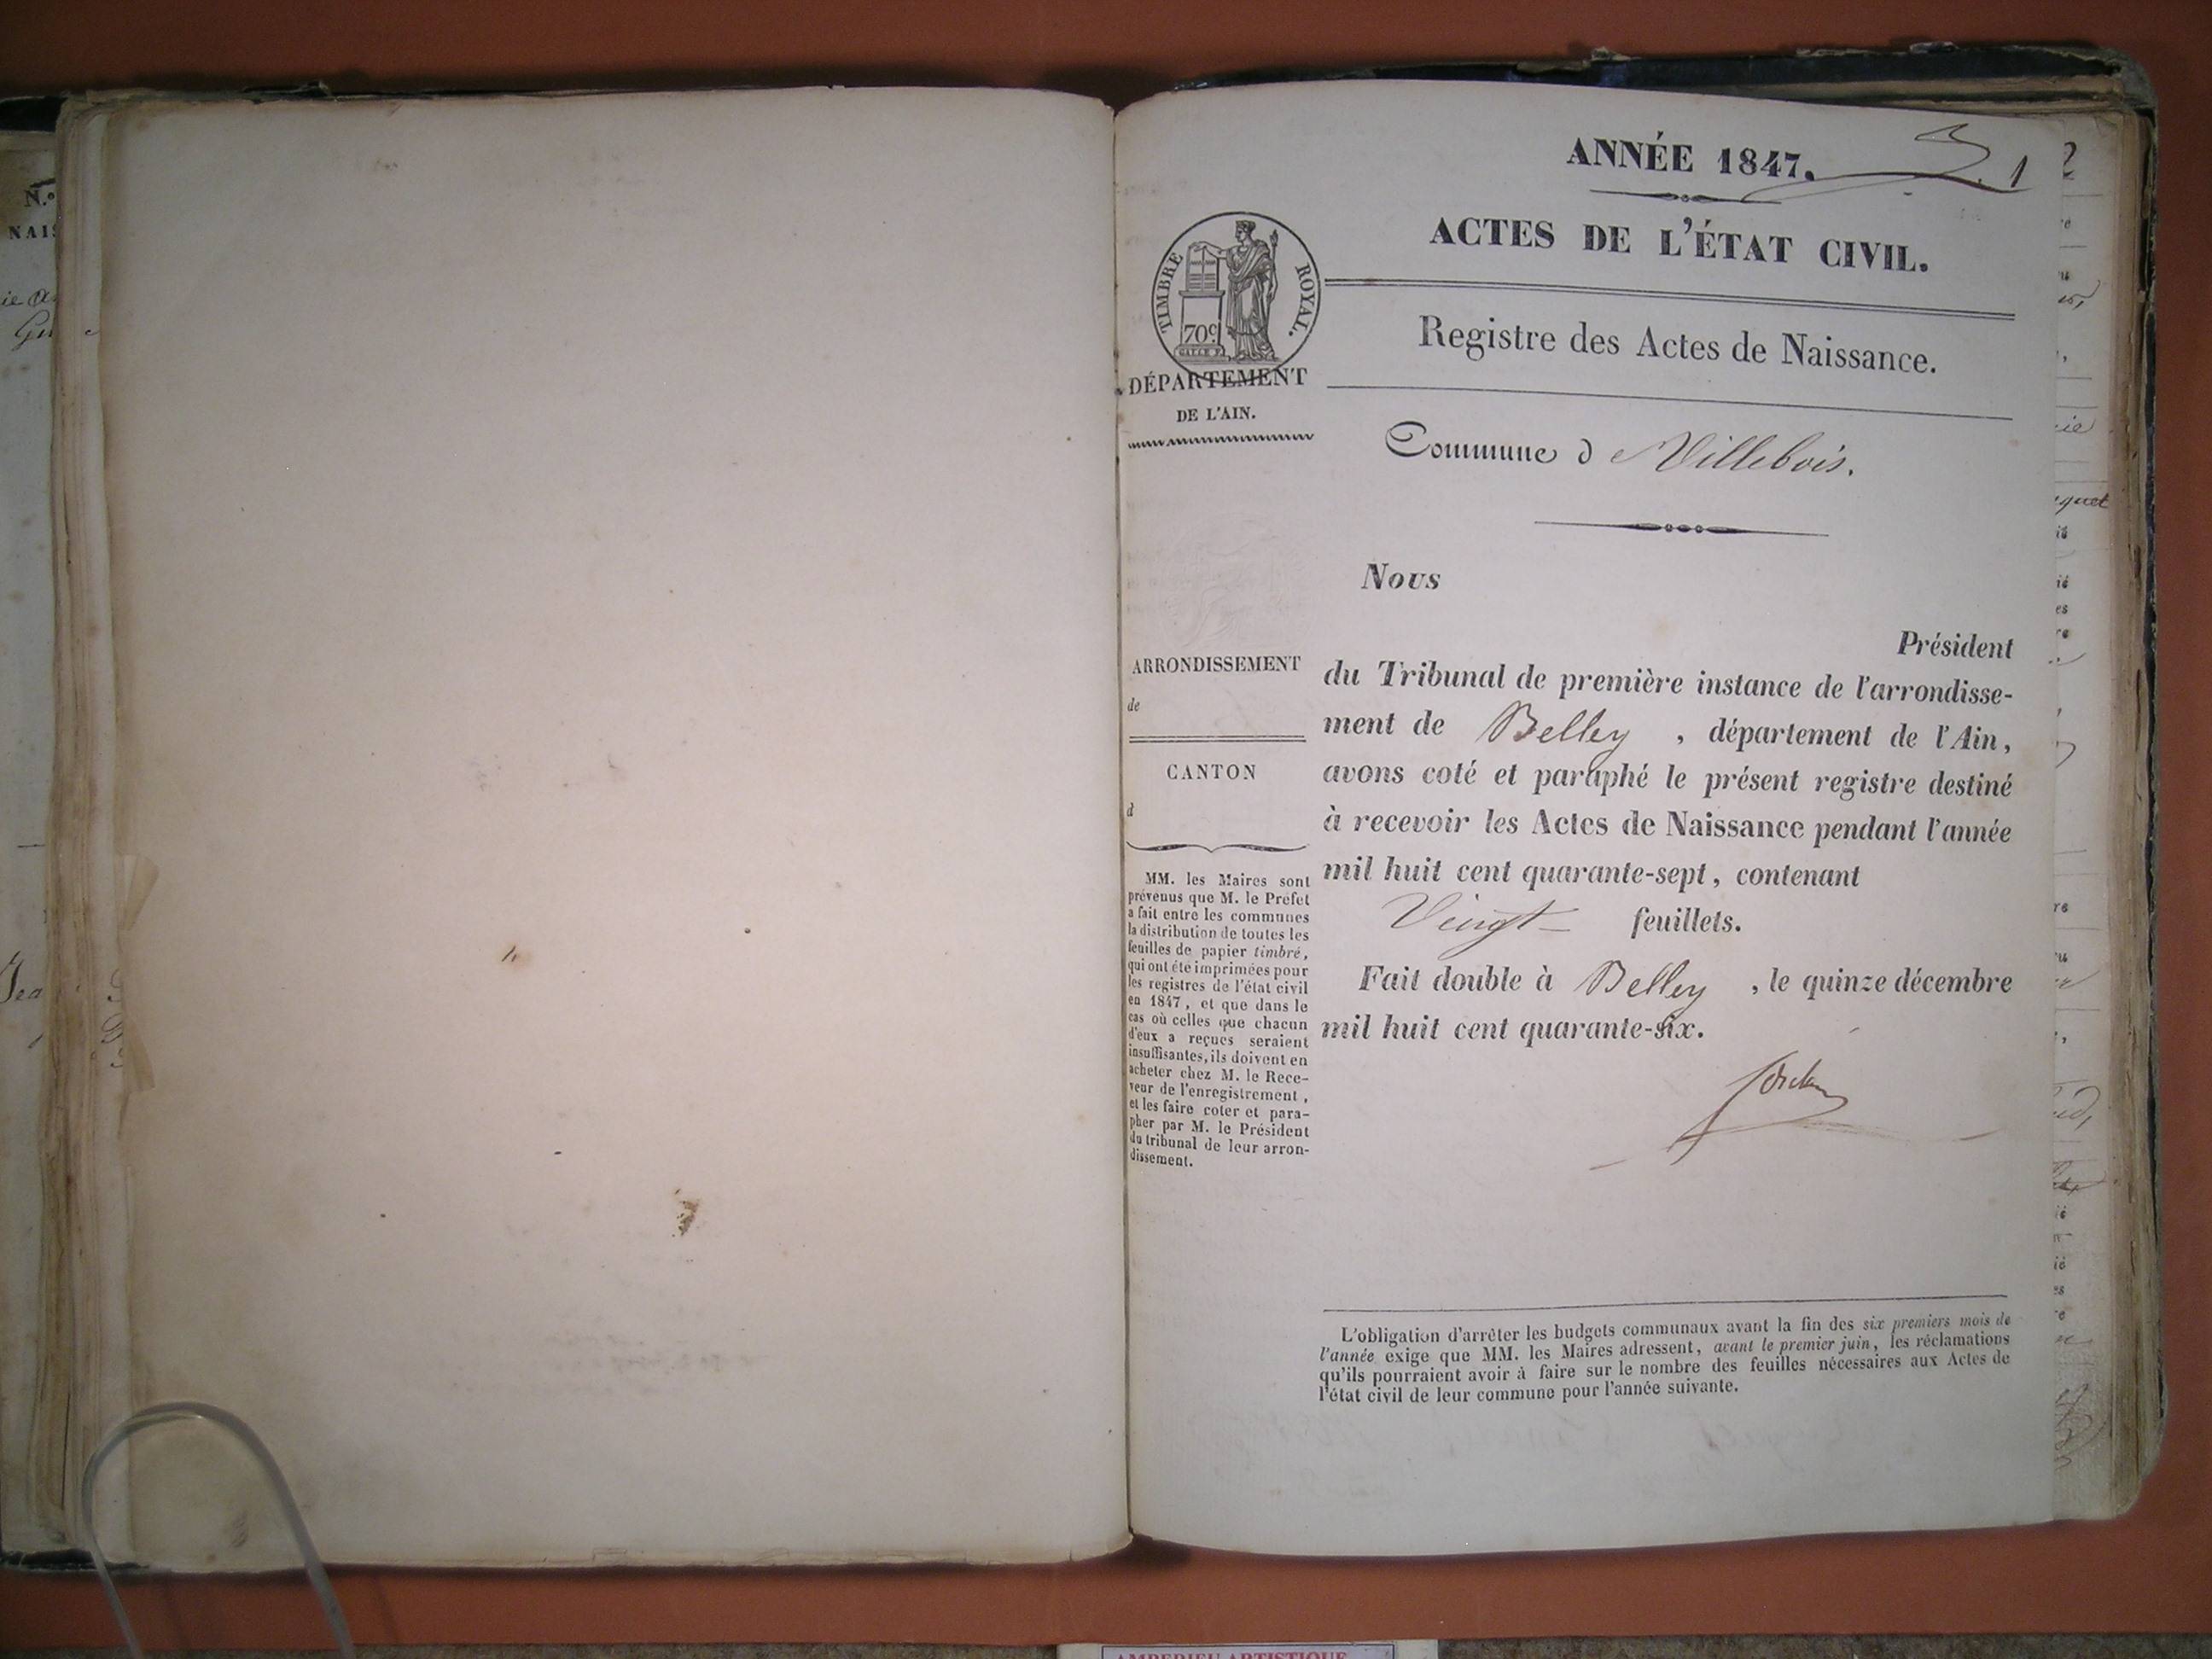 N.º
NAIS
ANNÉE 1847.
1
ACTES DE L'ÉTAT CIVIL.
TIMBRE ROYAL.
70c
Registre des Actes de Naissance.
DÉPARTEMENT
DE L'AIN.
Commune d Villebois.
Nous
Président
du Tribunal de première instance de l'arrondisse-
ment de Belley , département de l'Ain,
avons coté et paraphé le présent registre destiné
à recevoir les Actes de Naissance pendant l'année
mil huit cent quarante-sept, contenant
Vingt feuillets.
Fait double à Belley , le quinze décembre
mil huit cent quarante-six.
ARRONDISSEMENT
de
CANTON
d
MM. les Maires sont
prévenus que M. le Préfet
a fait entre les communes
la distribution de toutes les
feuilles de papier timbré,
qui ont été imprimées pour
les registres de l'état civil
en 1847, et que dans le
cas où celles que chacun
d'eux a reçues seraient
insuffisantes, ils doivent en
acheter chez M. le Rece-
veur de l'enregistrement,
et les faire coter et para-
pher par M. le Président
du tribunal de leur arron-
dissement.
L'obligation d'arrêter les budgets communaux avant la fin des six premiers mois de
l'année exige que MM. les Maires adressent, avant le premier juin, les réclamations
qu'ils pourraient avoir à faire sur le nombre des feuilles nécessaires aux Actes de
l'état civil de leur commune pour l'année suivante.
2
AMBERIEU ARTISTIQUE